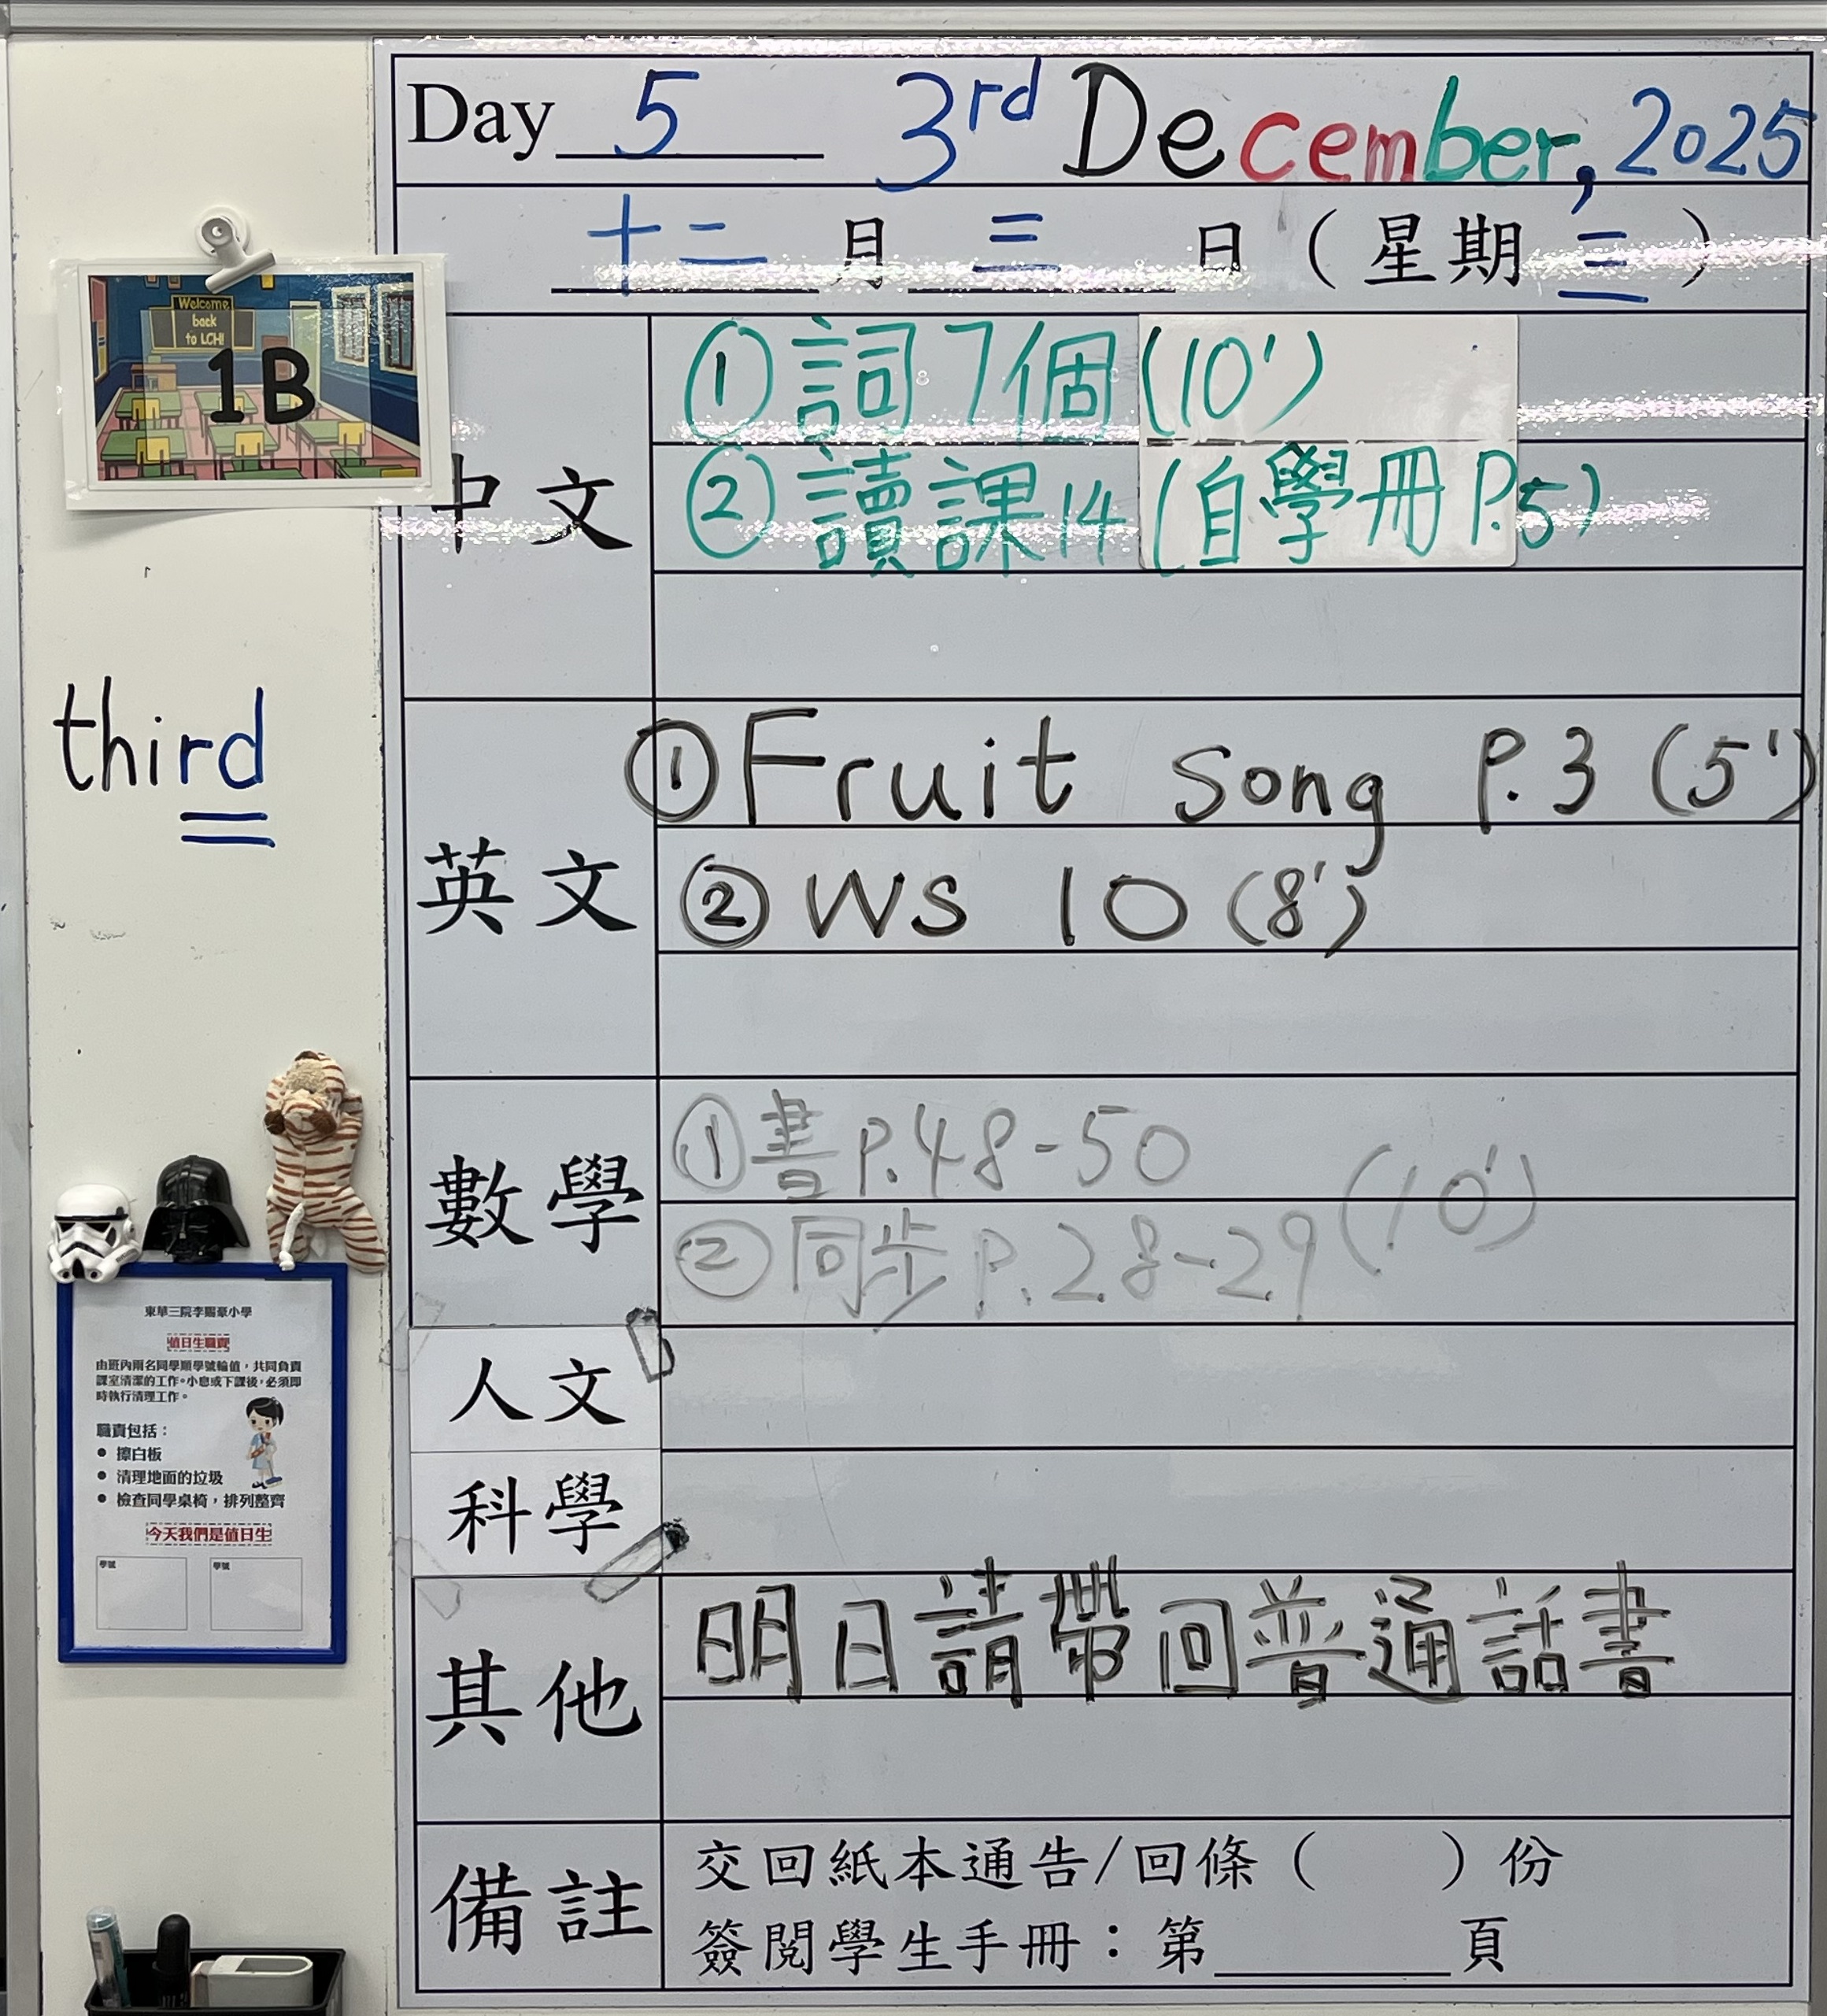 Day 5 3rd December, 2025
十二 月 三 日 ( 星期 三 )
Welcome
back
to LCH!
1B
中文
① 詞7個 (10')
② 讀課14 (自學冊 P.5)
third
英文
① Fruit song P.3 (5')
② WS 10 (8')
數學
① 書P.48-50
② 同步P.28-29 (10')
人文
科學
其他
明日請帶回普通話書
備註
交回紙本通告/回條 ( ) 份
簽閱學生手冊：第______頁
東華三院李賜豪小學
值日生職責
由班內兩名同學順學號輪值，共同負責
課室清潔的工作。小息或下課後，必須即
時執行清理工作。
職責包括：
● 擦白板
● 清理地面的垃圾
● 檢查同學桌椅，排列整齊
今天我們是值日生
學號 學號